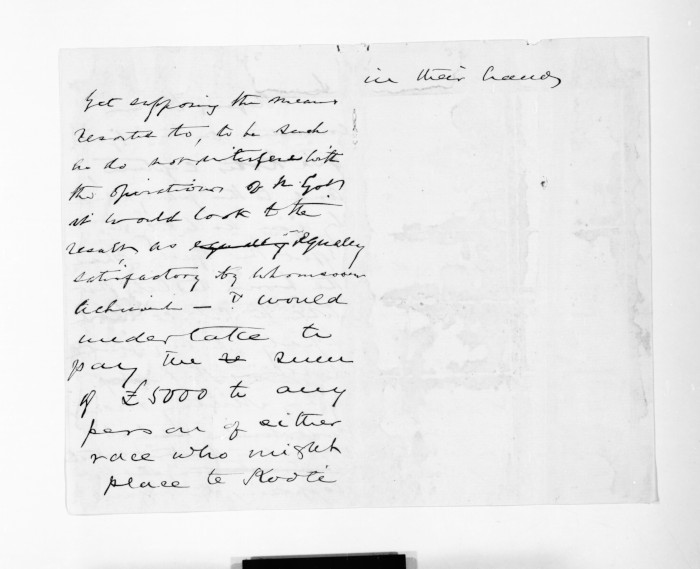 Yet supposing the means
resorted to, to be such
as do not interfere with
the operations of the Govt
it would look to the
result, as equally equally
satisfactory by whomsoever
achieved – & would
undertake to
pay the se sum
of £5000 to any
person of either
race who might
place te Kooti
in their hands